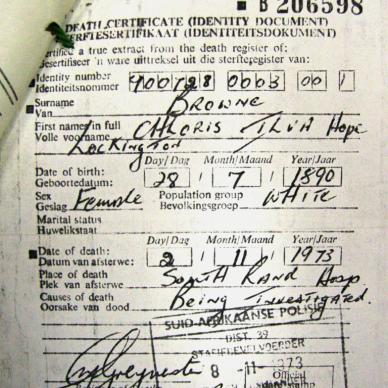 B 206598
DEATH CERTIFICATE (IDENTITY DOCUMENT)
STERFTESERTIFIKAAT (IDENTITEITSDOKUMENT)
Certified a true extract from the death register of:
Gesertifiseer 'n ware uittreksel uit die sterfteregister van:
Identity number
Identiteitsnommer 900728 0003 00 1
Surname
Van BROWNE
First names in full CHLORIS Hope
Volle voorname
Lockington
Day/Dag Month/Maand Year/Jaar
Date of birth:
Geboortedatum: 28 7 1890
Sex Female Population group WHITE
Geslag Bevolkingsgroep
Marital status
Huwelikstaat
Day/Dag Month/Maand Year/Jaar
Date of death:
Datum van afsterwe: 2 11 1973
Place of death South Rand Hosp
Plek van afsterwe
Causes of death Being Investigated.
Oorsake van dood
SUID-AFRIKAANSE POLISIE
DIST. 39
STASIEBEVELVOERDER
8 -11- 1973
Official